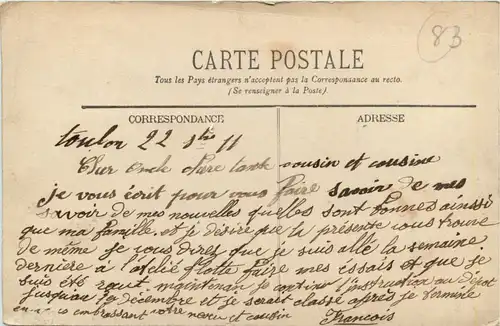 83
CARTE POSTALE
Tous les Pays étrangers n'acceptent pas la Correspondance au recto.
(Se renseigner à la Poste).
CORRESPONDANCE
ADRESSE
toulon 22 11
Cher oncle chère tante cousin et cousine
je vous écrit pour vous faire savoir de mes
savoir de mes nouvelles quelles sont bonnes ainsi
que ma famille. et je désire que la présente vous trouve
de même je vous direz que je suis allé la semaine
dernière a flotte faire mes éssais et que je
suis été maintenant je l'instruction au dépot
jusquau 1er décembre et je serait classé après je termine
en embrassant votre neveu et cousin François